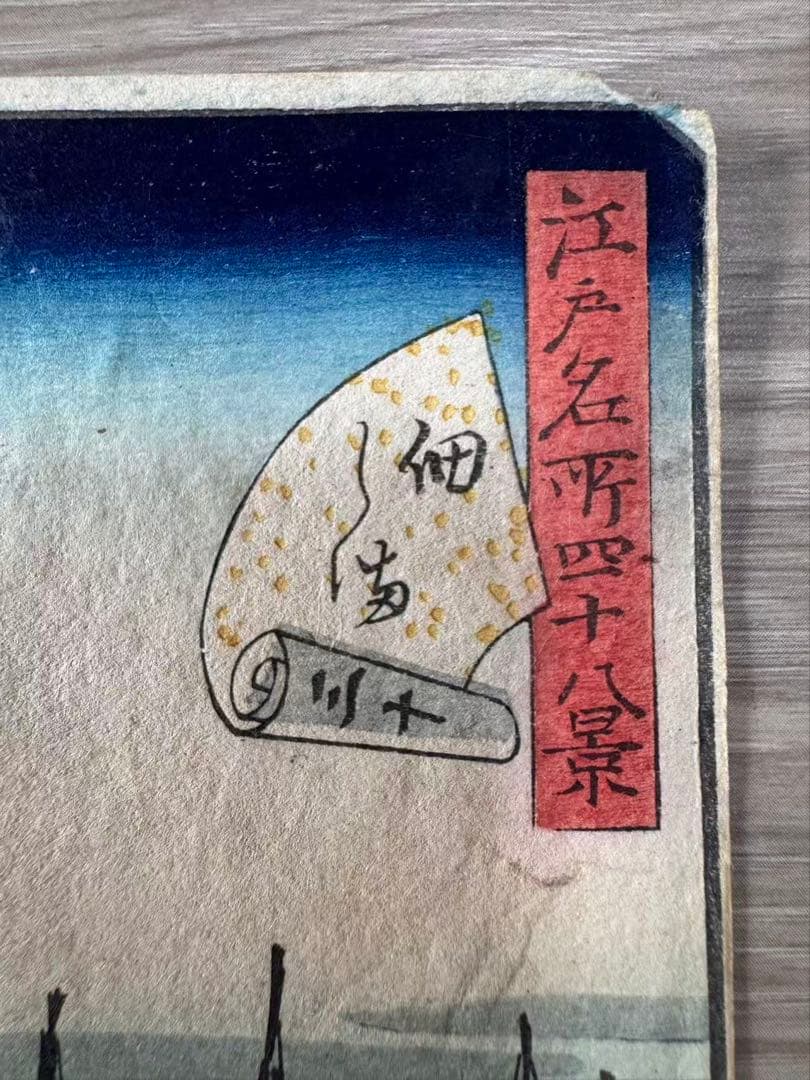 江戸名所四十八景
佃しま
十三